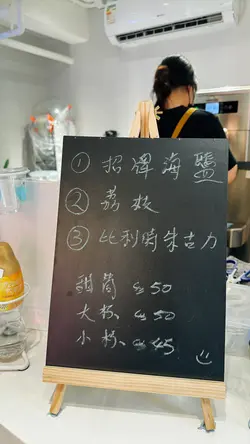 ① 招牌海鹽
② 荔枝
③ 比利時朱古力
甜筒 $50
大杯 $50
小杯 $45